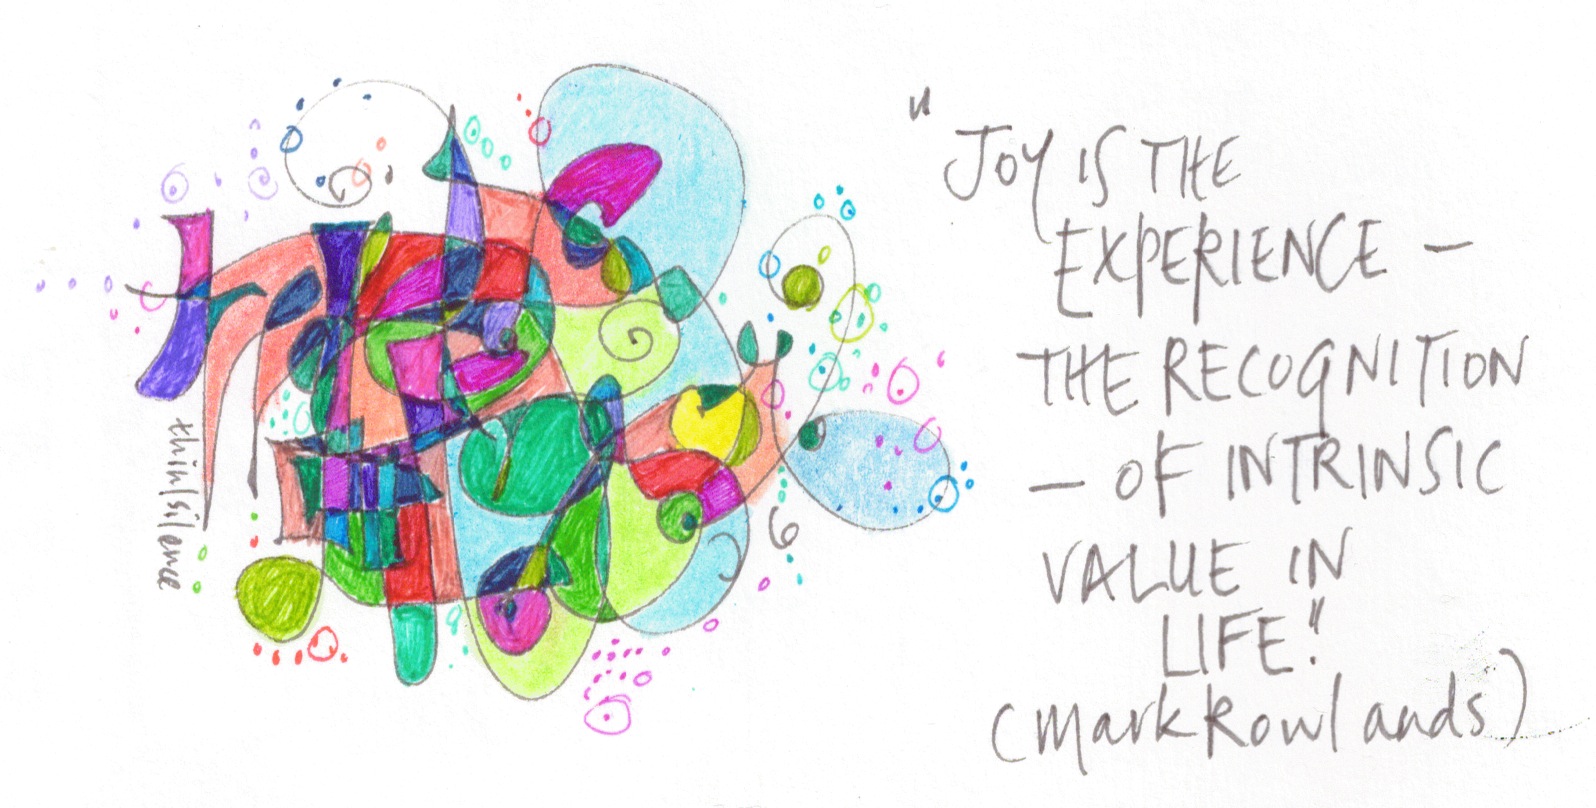 "JOY IS THE
EXPERIENCE —
THE RECOGNITION
— OF INTRINSIC
VALUE IN
LIFE."
(Mark Rowlands)
thin|silence